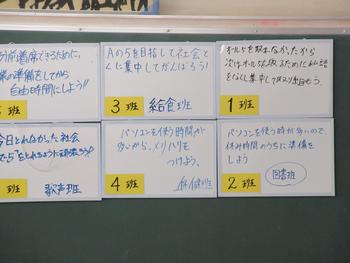 前着席できるために、
の準備をしてから
自由時間にしよう!!
Aの5を目指して社会と
くに集中してがんばろう!
3 班 給食班
オール5を取れなかったから
次はオール5を取るために私語
をなくし集中して
1 班
今日とれなかった社会
で"5"をとれるように頑張ろう!
班 歌声班
パソコンを使う時間が
多いから、メリハリを
つけよう。
4 班 保健班
パソコンを使う時が多いので、
休み時間のうちに準備を
しよう
2 班 図書班